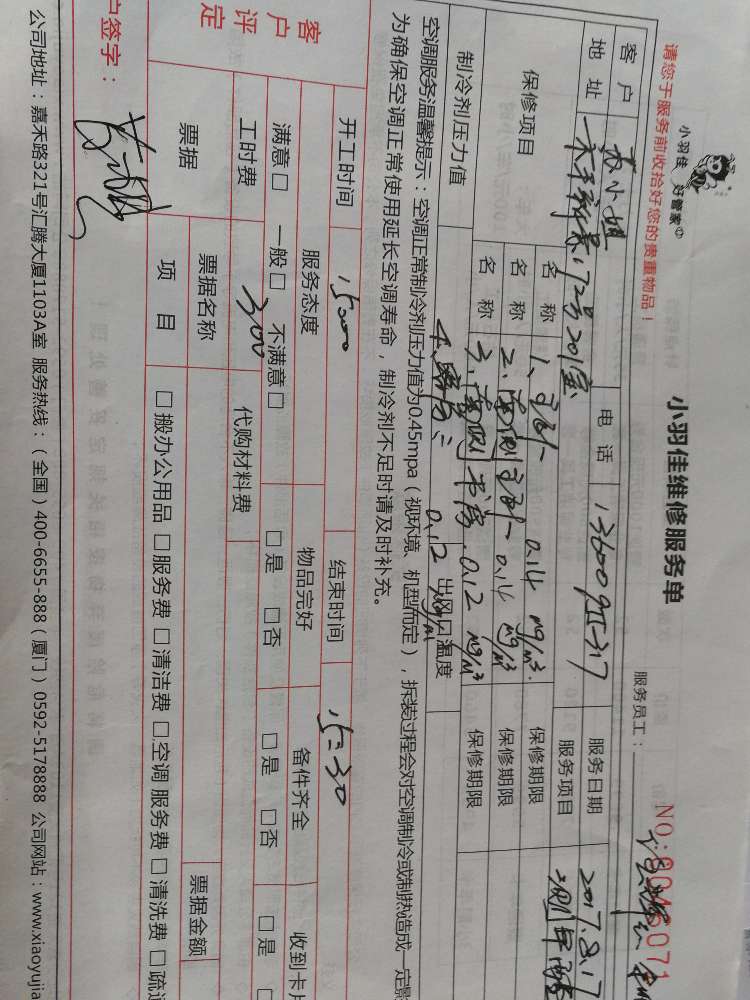 小羽佳 好管家
小羽佳维修服务单
请您于服务前收拾好您的贵重物品！
服务员工：
NO:8046071
客户 小姐 电话 服务日期 2017.8.17
地址 172号201室 服务项目
保修项目 名称 1、主卧 0.14 mg/m³. 保修期限
名称 2、南侧主卧 0.14 mg/m³ 保修期限
名称 3、南侧书房，0.12 mg/m³ 保修期限
制冷剂压力值 4、 0.12 mg/m³ 出风口温度
空调服务温馨提示：空调正常制冷剂压力值为0.45mpa（视环境、机型而定），拆装过程会对空调制冷或制热造成一定影
为确保空调正常使用延长空调寿命，制冷剂不足时请及时补充。
开工时间 15:00 结束时间 15:30
客户评定 服务态度 物品完好 备件齐全 收到卡片
满意□ 一般□ 不满意□ □是 □否 □是 □否 □是 □
工时费 300 代购材料费
票据 票据名称 票据金额
项目 □搬办公用品 □服务费 □清洁费 □空调服务费 □清洗费 □疏通
户签字：
公司地址：嘉禾路321号汇腾大厦1103A室 服务热线：（全国）400-6655-888（厦门）0592-5178888 公司网站：www.xiaoyujia